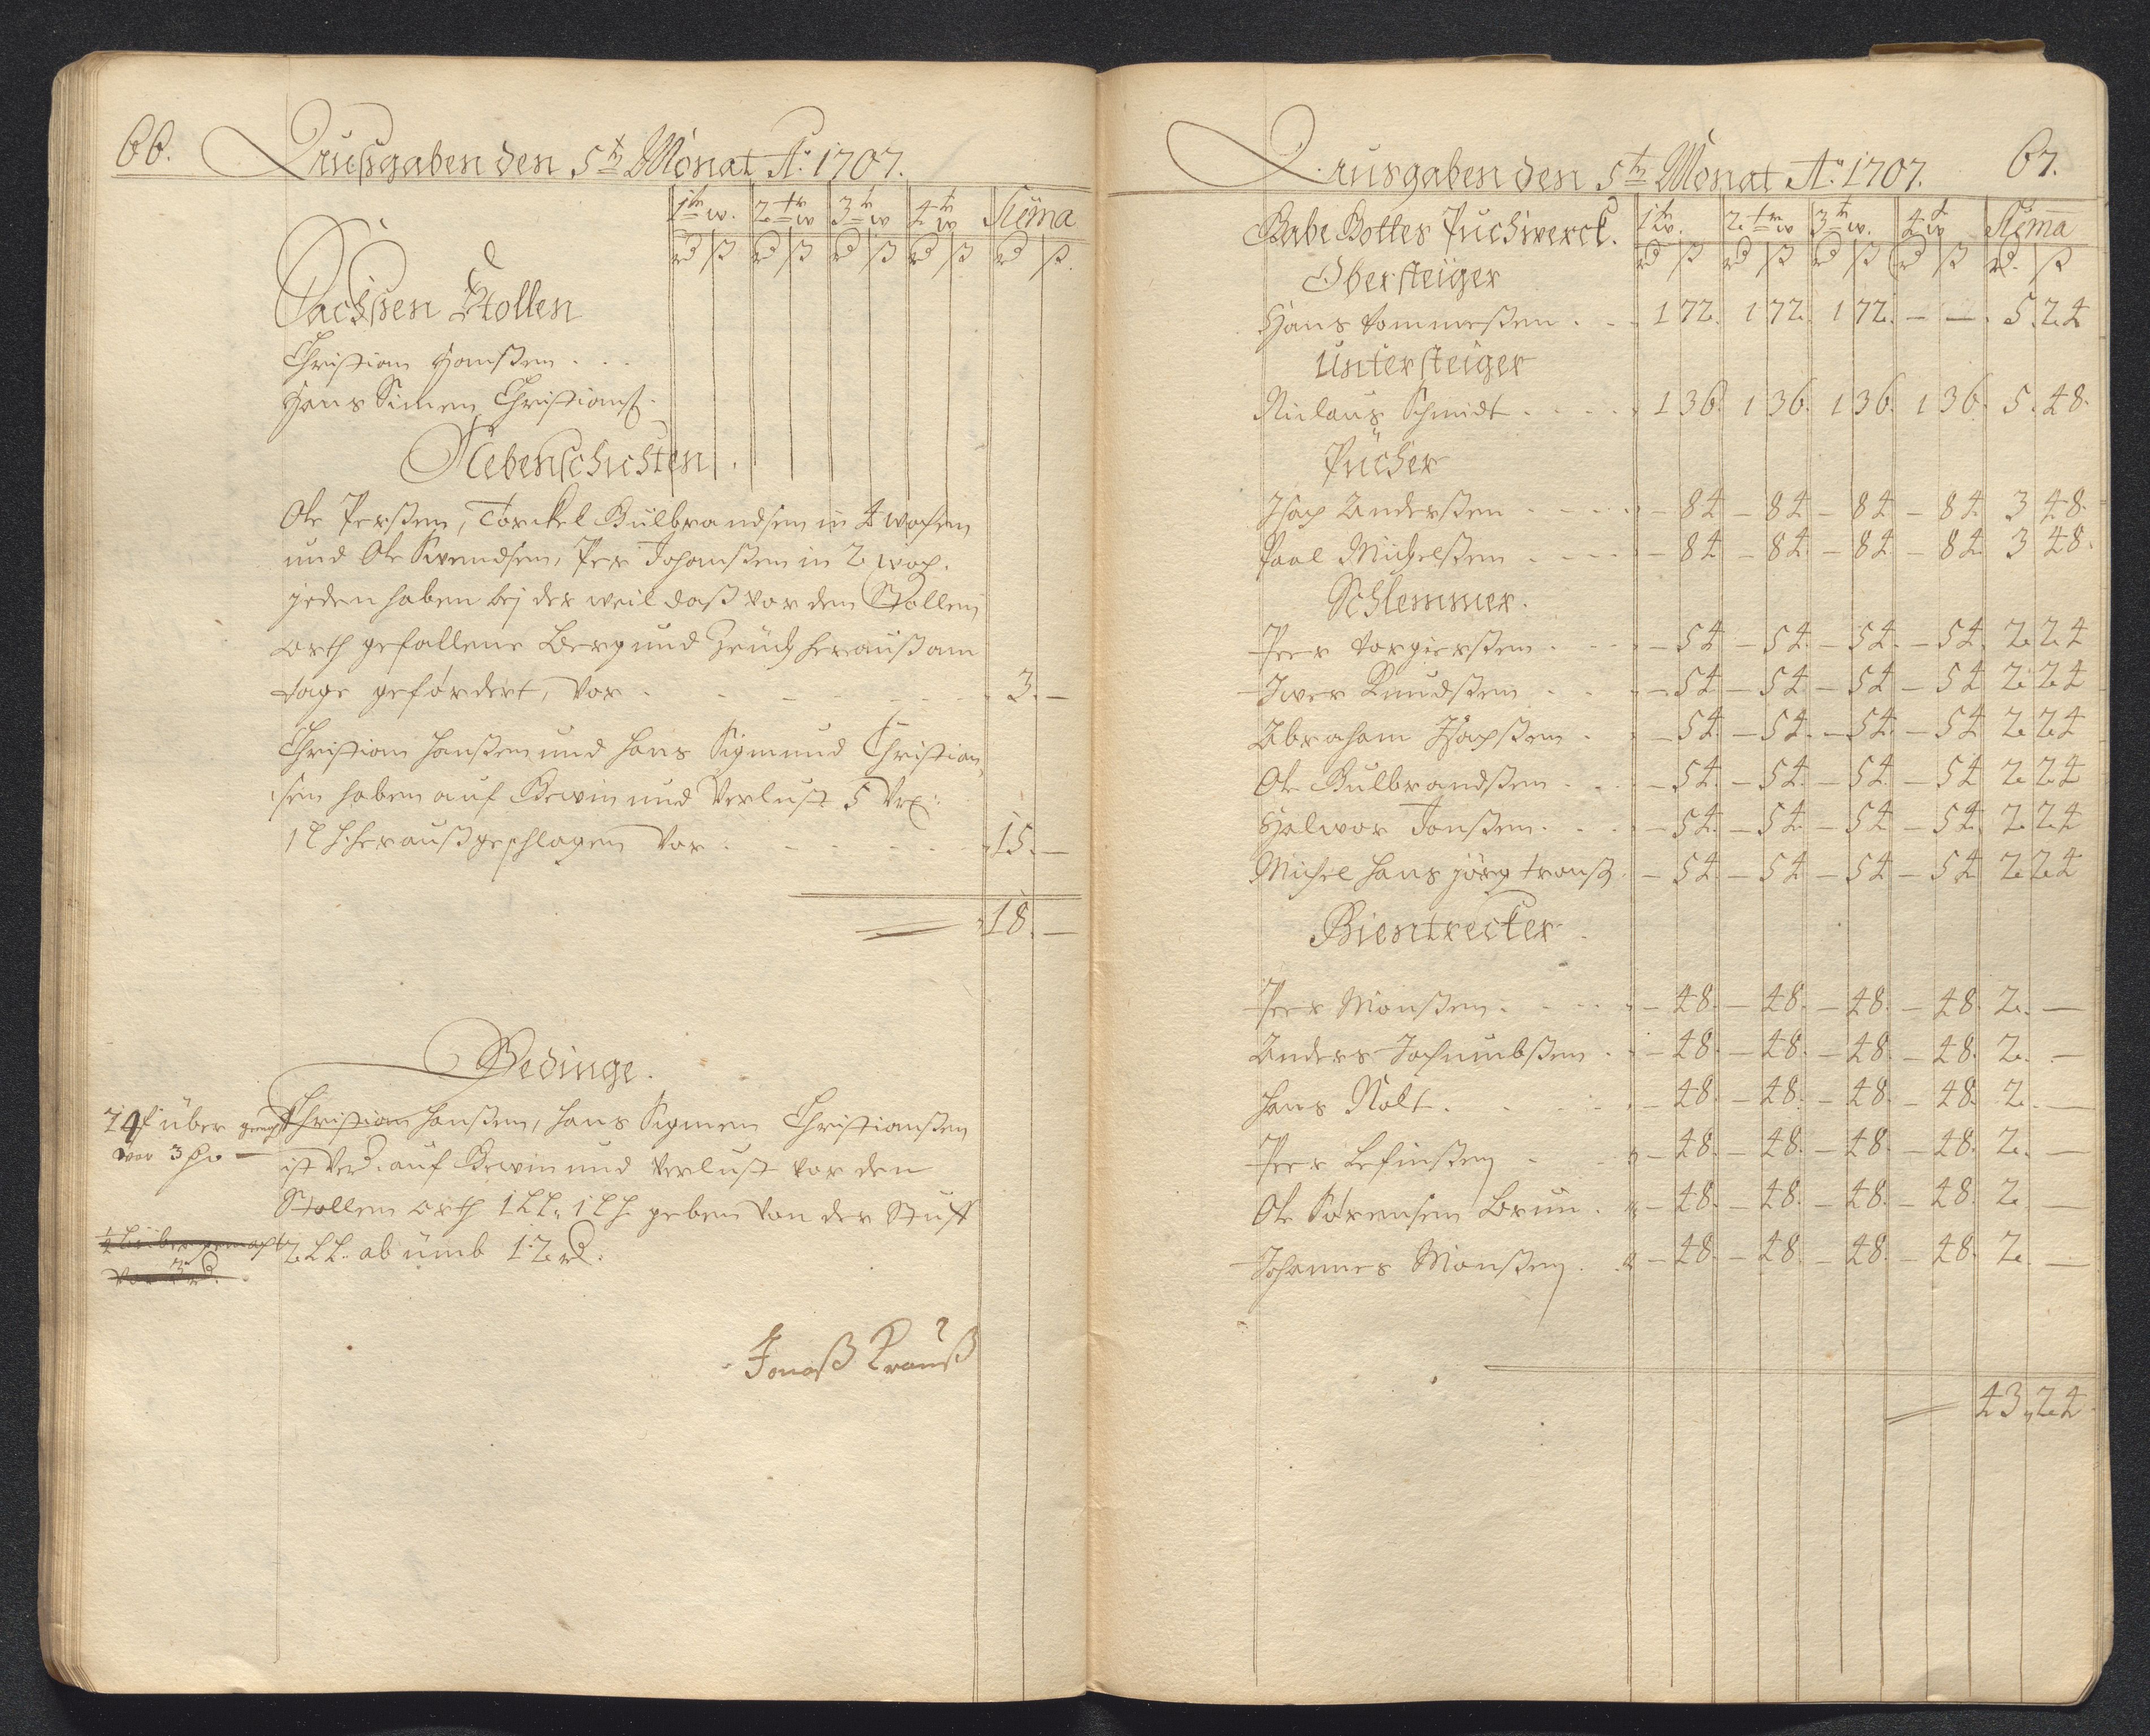 66. Ausgaben den 5tr Monat Ao. 1707.
1tr w. 2tr w 3tr w 4tr w Suma
rd ß rd ß rd ß rd ß rd ß
Sachsen Stollen
Christian Hanßen . . .
Hans Simen Christians.
Nebenschichten.
Ole Perßen, Torckel Gulbrandsen in 4 wochen
und Ole Svendsen, Per Johanßen in 2 woch.
jeden haben bej der weil daß vor dem Stollen
orth gefallene Berg und Zeüch herauß am
tage gefördert, vor . - - - - 3. —
Christian Hanßen und Hans Sigmund Christian
sen haben auf Gewin und Verlust 5
1 L h. herauß geschlagen vor . - - - 15. —
18. —
Gedinge.
Christian Hanßen, Hans Sigmen Christianßen
ist Verd. auf Gewin und Verlust vor den
Stollen orth 1 LL. 1 L h. geben von der Stuff
2 LL. ab umb 12 rd.
über
vor 3
vor 3 rd.
Jonaß Krauß
Ausgaben den 5tr Monat Ao. 1707. 67.
Gabe Gottes Puchwerck. 1tr w. 2tr w 3tr w. 4tr w Suma
rd ß rd ß rd ß rd ß rd. ß
Obersteiger
Hans Tommeßen . - 1 72. 1 72. 1 72. — — 5. 24
Untersteiger
Niclaus Schmidt . - - - 1 36. 1 36. 1 36. 1 36. 5. 48.
Pücher
Isach Anderßen . - - - 84 - 84 - 84 - 84 3 48.
Paal Michelßen . - - - 84 - 84 - 84 - 84 3 48.
Schlemmer.
Peer Torgierßen . - - 54 - 54. - 54. - 54. 2. 24
Iver Knudßen . - 54 - 54 - 54 - 54 2. 24
Abraham Isachßen . - 54 - 54. - 54. - 54 2. 24
Ole Gulbrandßen . - 54. - 54 - 54 - 54 2. 24
Halvor Jonßen. . - 54. - 54 - 54 - 54. 2. 24
Michel Hans jörg - 54 - 54 - 54 - 54 2. 24
Gientrecker
Peer Monßen. . - - 48. - 48. - 48. - 48. 2. —
Anders Jochumbßen . - 48. - 48. - 48. - 48. 2. —
Hans Nolt. . - 48. - 48. - 48. - 48. 2. —
Peer - 48. - 48. - 48. - 48. 2. —
Ole Sörensen Brun . - 48. - 48. - 48. - 48. 2. —
Johannes Monßen . - 48. - 48. - 48. - 48. 2. —
43, 24.